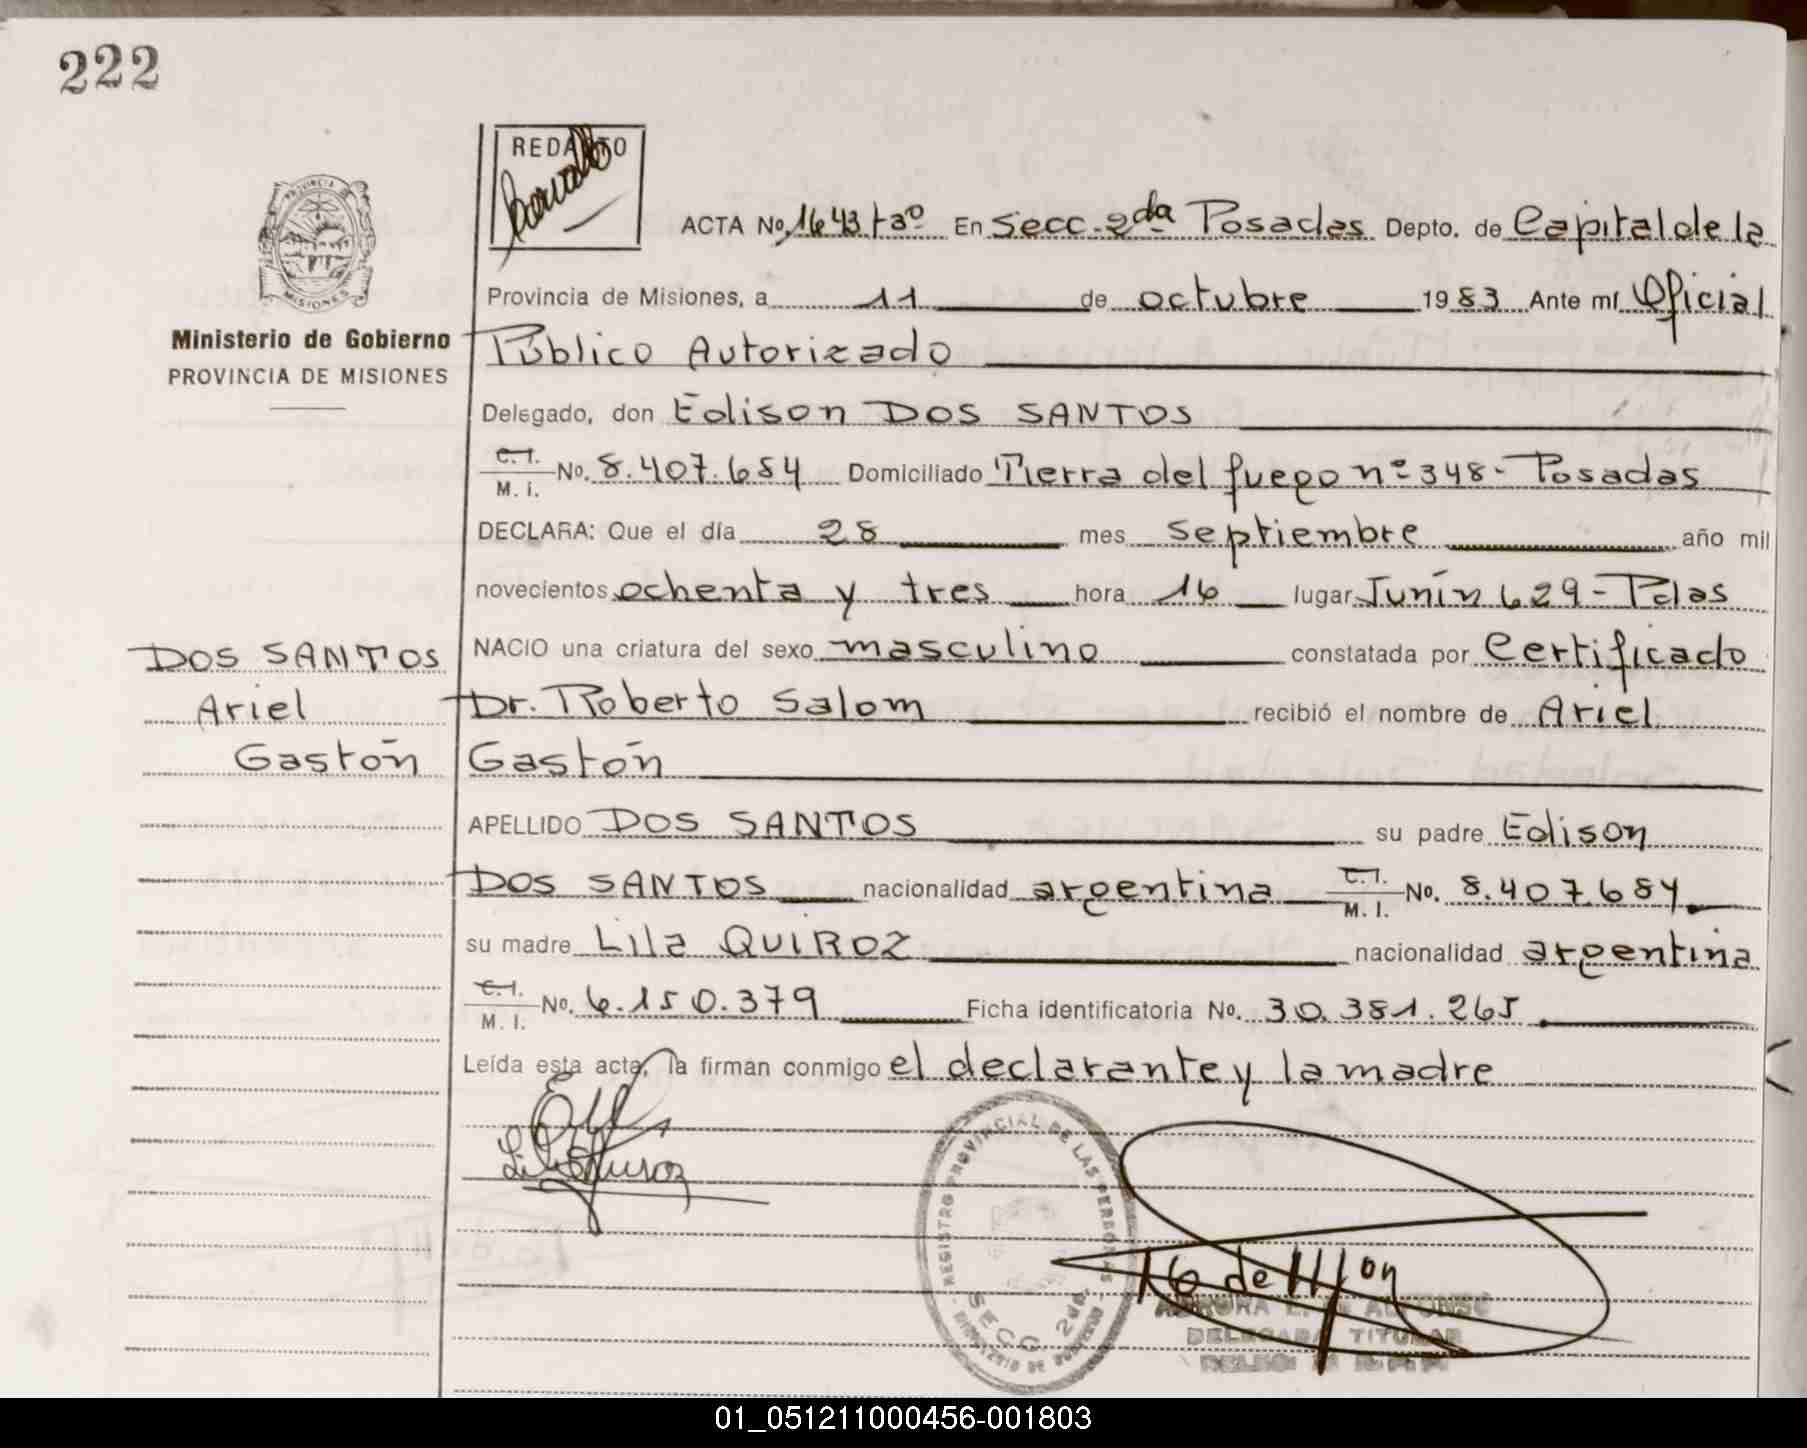 222
REDACTO
PROVINCIA DE
MISIONES
ACTA No. 1643 t 3º En Secc. 2da Posadas Depto. de Capital de la
Provincia de Misiones, a 11 de octubre 1983 Ante mí Oficial
Ministerio de Gobierno
PROVINCIA DE MISIONES
Público Autorizado
Delegado, don Edison DOS SANTOS
C.I. M. I. No. 8.407.684 Domiciliado Tierra del fuego nº 348 - Posadas
DECLARA: Que el día 28 mes septiembre año mil
novecientos ochenta y tres hora 16 lugar Junín 629 - Pdas
DOS SANTOS
Ariel
Gastón
NACIO una criatura del sexo masculino constatada por Certificado
Dr. Roberto Salom recibió el nombre de Ariel
Gastón
APELLIDO DOS SANTOS su padre Edison
DOS SANTOS nacionalidad argentina C.I. M. I. No. 8.407.684
su madre Lila QUIROZ nacionalidad argentina
C.I. M. I. No. 6.150.379 Ficha identificatoria No. 30.381.265
Leída esta acta, la firman conmigo el declarante y la madre
REGISTRO PROVINCIAL DE LAS PERSONAS
SECC. 2da.
DELEGADA TITULAR
01_051211000456-001803